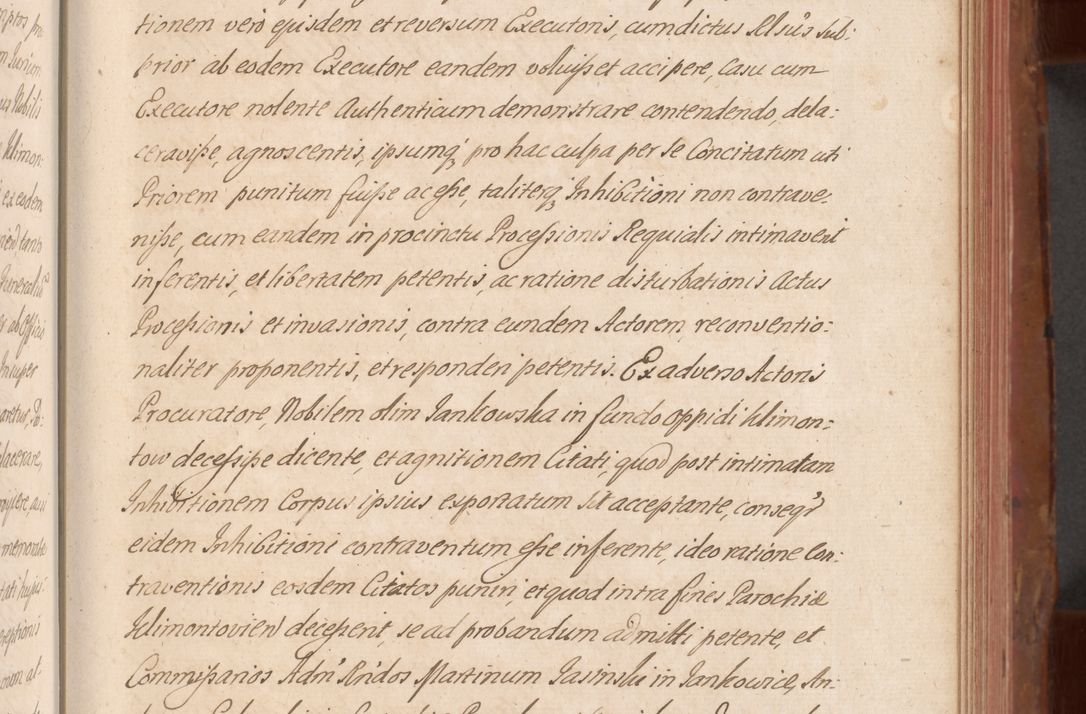 tionem verò ejusdem et reversum Executoris, cum dictus Rlsus Sub:
prior ab eodem Executore eandem voluisset accipere, Casu cum
Executore nolente Authenticum demonstrare contendendo, dela:
ceravisse, agnoscentis, ipsumq₃ pro hac culpa per se Concitatum uti
Priorem punitum fuisse ac esse, taliterq₃ Inhibitioni non contrave:
nisse, cum eandem in procinctu Processionis Requialis intimaverit
inferentis, et libertatem petentis, ac ratione disturbationis Actus
Processionis et invasionis, contra eundem Actorem, reconventio:
naliter proponentis, et responderi petentis. Ex adverso Actoris
Procuratore, Nobilem olim Jankowska in fundo oppidi Klimon:
tow decessisse dicente, et agnitionem Citati, quod post intimatam
Inhibitionem Corpus ipsius exportatum sit acceptante, conseqr
eidem Inhibitioni contraventum esse inferente, ideo ratione Con:
traventionis eosdem Citatos puniri, et quod intra fines Parochiæ
Klimontovien decesserit, se ad probandum admitti petente, et
Commissarios Adm Rndos Martinum Jasinski in Jankowice, An: